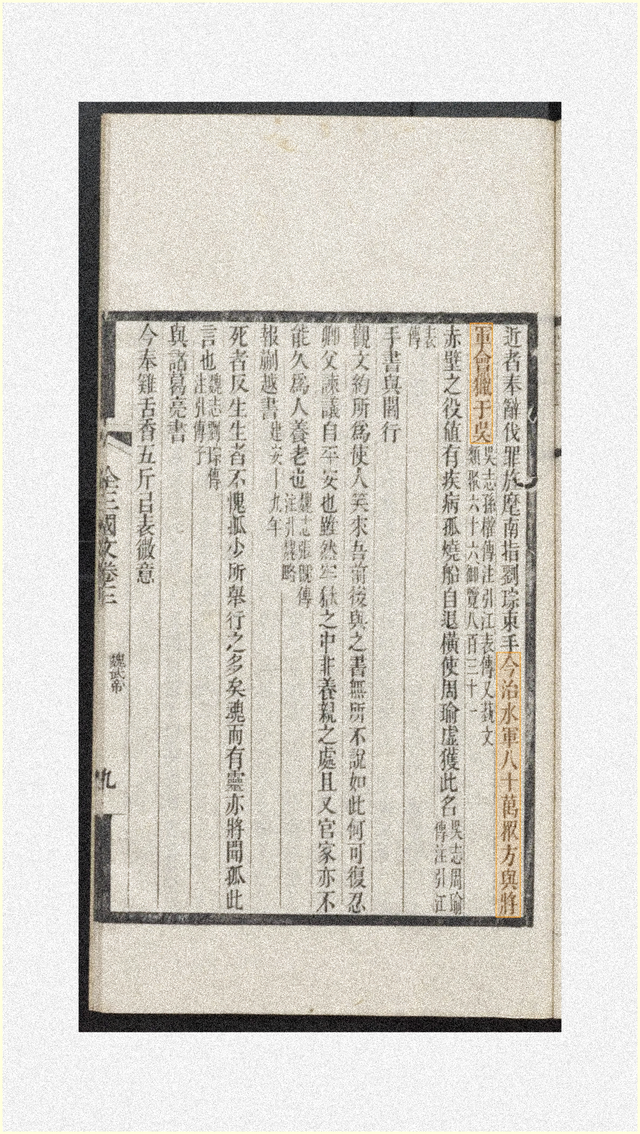 近者奉辭伐罪旄麾南指劉琮束手今治水軍八十萬眾方與將
軍會獵于吳
吳志孫權傳注引江表傳又藝文
類聚六十六御覽八百三十一
赤壁之役值有疾病孤燒船自退橫使周瑜虛獲此名
吳志周瑜
傳注引江
表
傳
手書與閻行
觀文約所爲使人笑來吾前後與之書無所不說如此何可復忍
卿父諫議自平安也雖然牢獄之中非養親之處且又官家亦不
能久爲人養老也
魏志張既傳
注引魏略
報蒯越書
建安十九年
死者反生生者不愧孤少所舉行之多矣魂而有靈亦將聞孤此
言也
魏志劉琮傳
注引傅子
與諸葛亮書
今奉雞舌香五斤㠯表微意
全三國文卷三
魏武帝
九